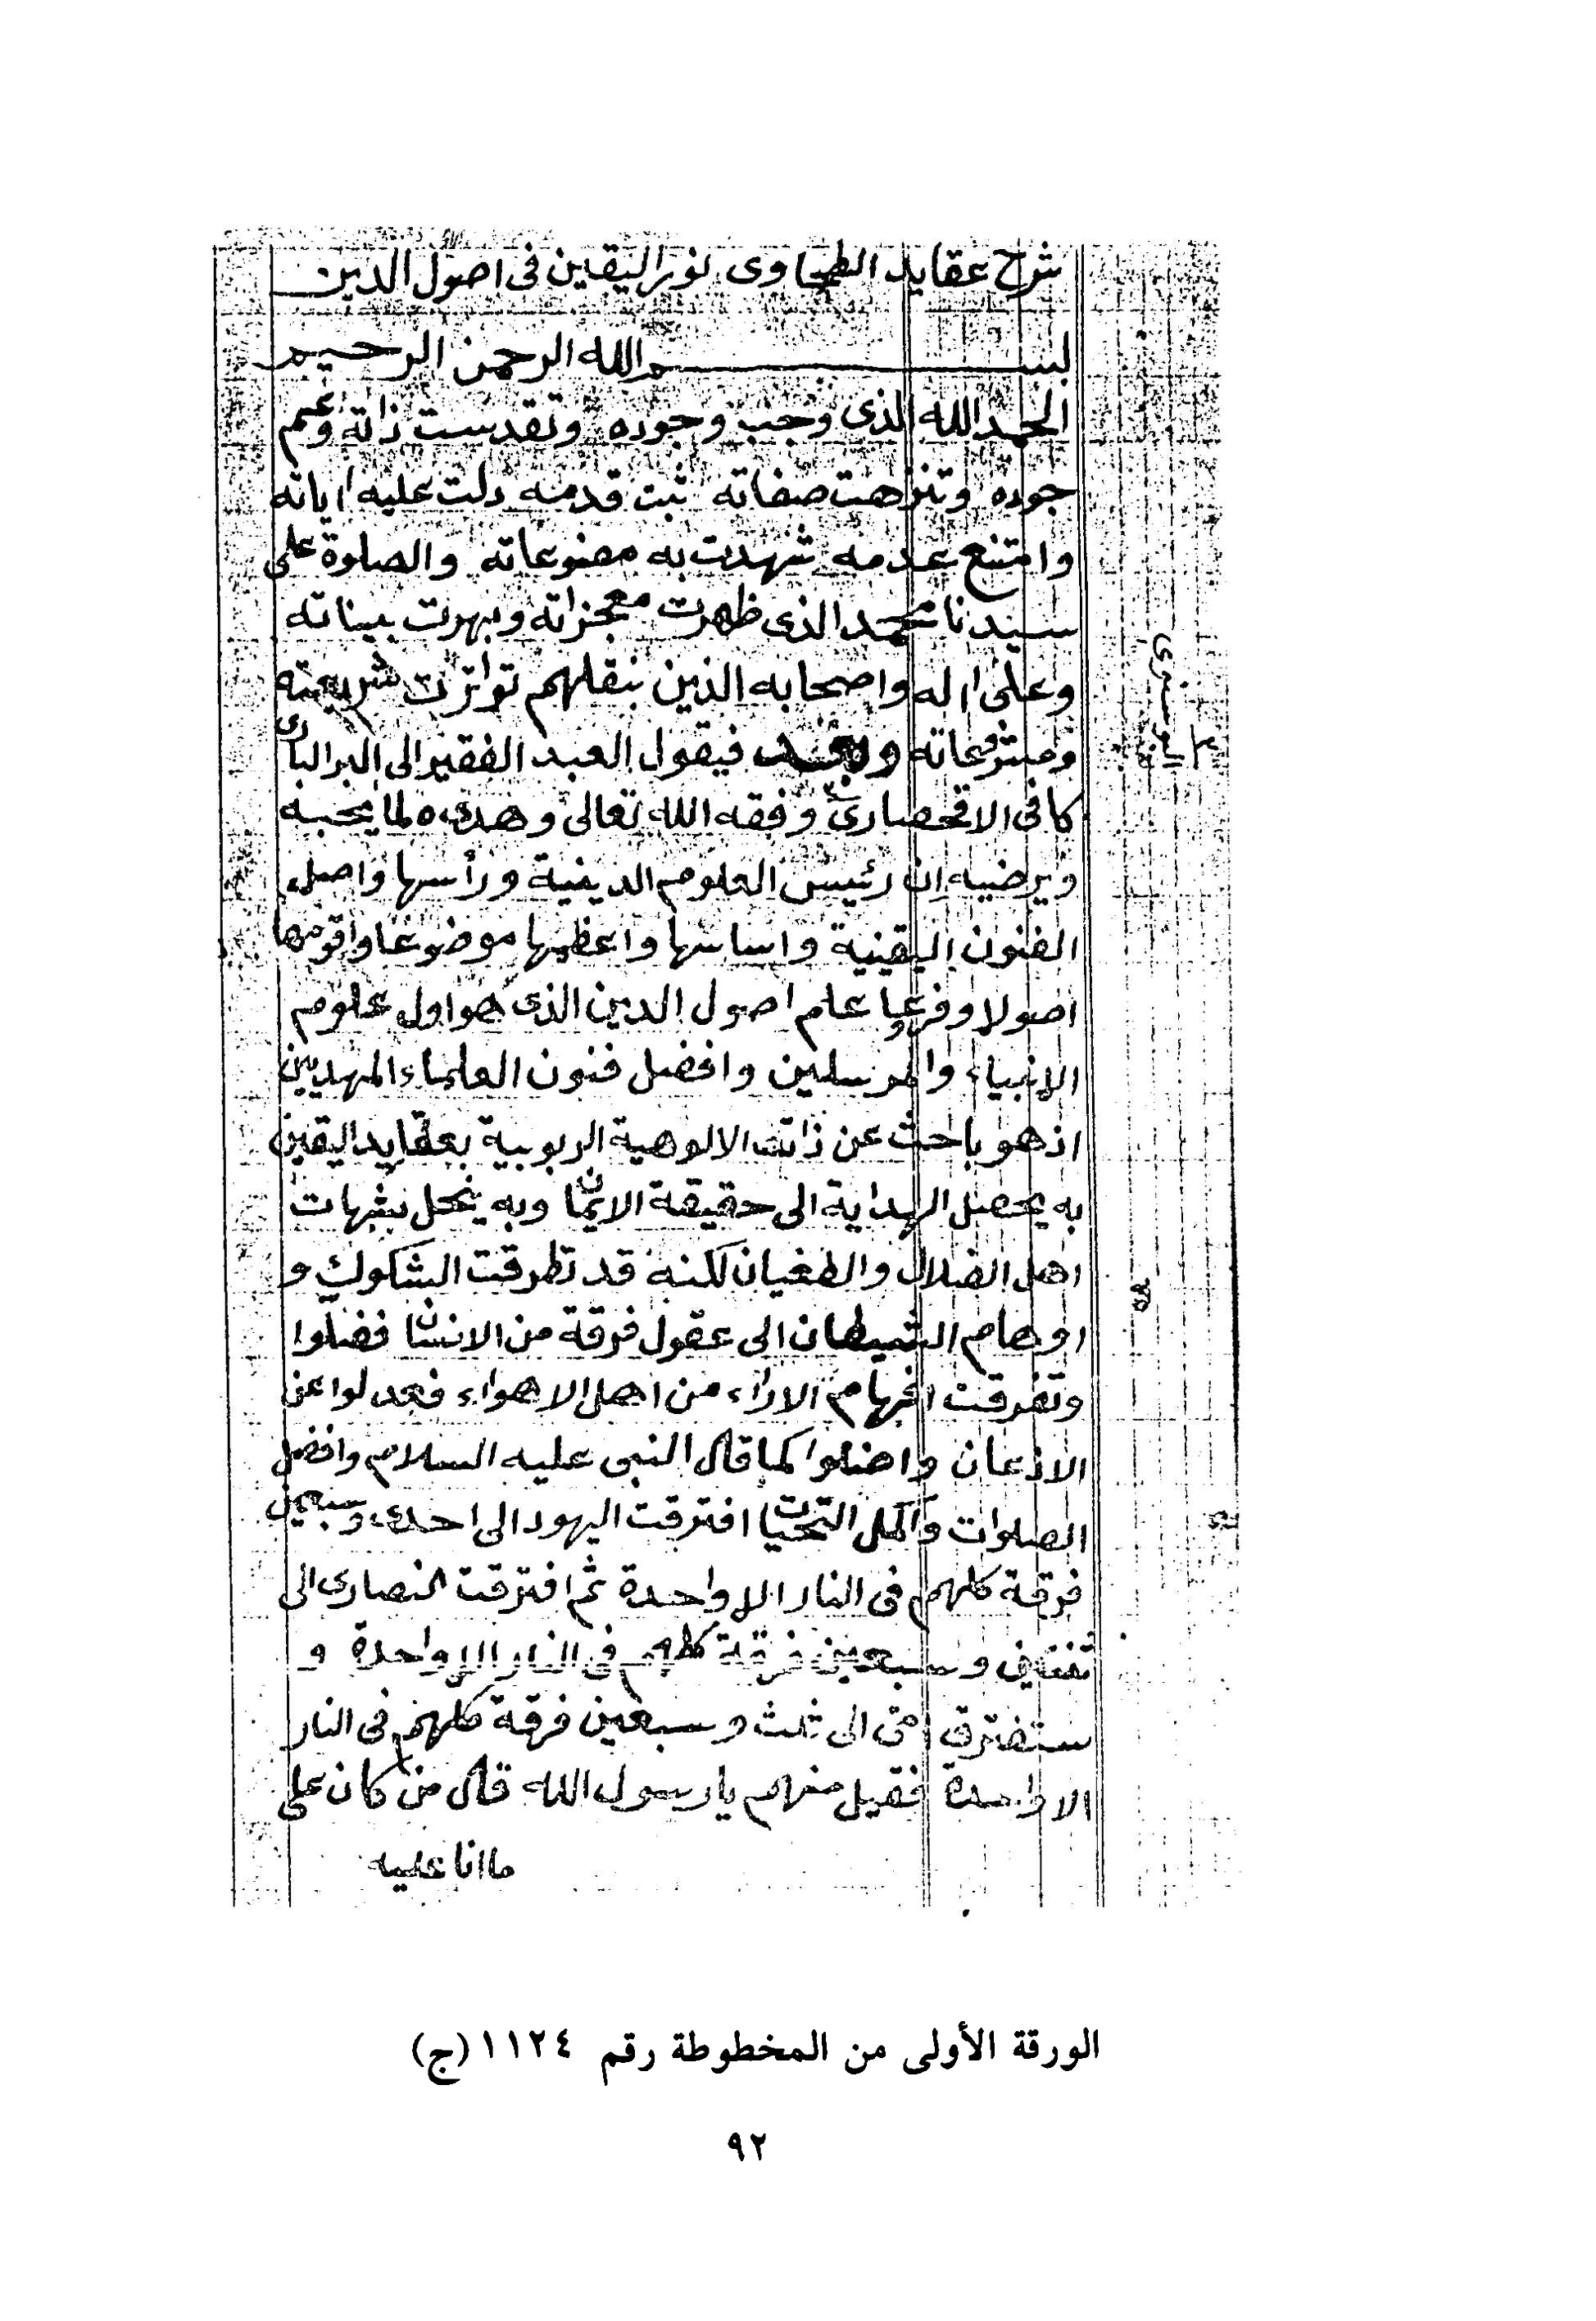 شرح عقايد الطحاوى نور اليقين فى اصول الدين
بسم الله الرحمن الرحيم
الحمد الله الذى وجب وجوده وتقدست ذاته وعم
جوده وتنزهت صفاته ثبت قدمه دلت عليه اياته
وامتنع عدمه شهدت به مصنوعاته والصلوة على
سيدنا محمد الذى ظهرت معجزاته وبهرت بيناته
وعلى اله واصحابه الذين بنقلهم تواترت شريعته
ومشروحاته وبعد فيقول العبد الفقير الى البر البارى
كافى الاقحصارى وفقه الله تعالى وهداه لما يحبه
ويرضيه ان رئيس العلوم الدينية ورأسها واصل
الفنون اليقينية واساسها واعظمها موضوعا واقومها
اصولا وفروعا علم اصول الدين الذى هو اول علوم
الانبياء والمرسلين وافضل فنون العلماء المهديين
اذ هو باحث عن ذات الالوهية الربوبية بعقايد اليقين
به يحصل الهداية الى حقيقة الايمان وبه ينحل شبهات
اهل الضلال والطغيان لكنه قد تطرقت الشكوك و
اوهام الشيطان الى عقول فرقة من الانسان فضلوا
وتفرقت افهام الاراء من اهل الاهواء فعدلوا عن
الاذعان واضلوا كما قال النبى عليه السلام وافضل
الصلوات واكمل التحيات افترقت اليهود الى احدى وسبعين
فرقة كلهم فى النار الا واحدة ثم افترقت النصارى الى
ثنتين وسبعين فرقة كلهم فى النار الا واحدة و
ستفترق امتى الى ثلث وسبعين فرقة كلهم فى النار
الا واحدة فقيل منهم يا رسول الله قال من كان على
ما انا عليه
الورقة الأولى من المخطوطة رقم ١١٢٤ (ج)
٩٢